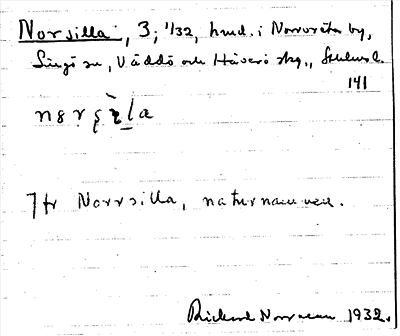 Norsilla, 3; 1/32, hmd. i Norrsätra by,
Singö sn, Väddö och Häverö skg., Sthlms l.
141
Jfr Norrsilla, naturnamnen.
Rickard Norrman 1932.